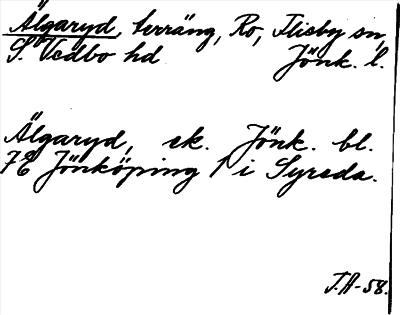 Älgaryd, terräng, Ro, Flisby sn,
S. Vedbo hd Jönk. l.
Älgaryd, ek. Jönk. bl.
7E Jönköping 1 i Syreda.
T.A-58.